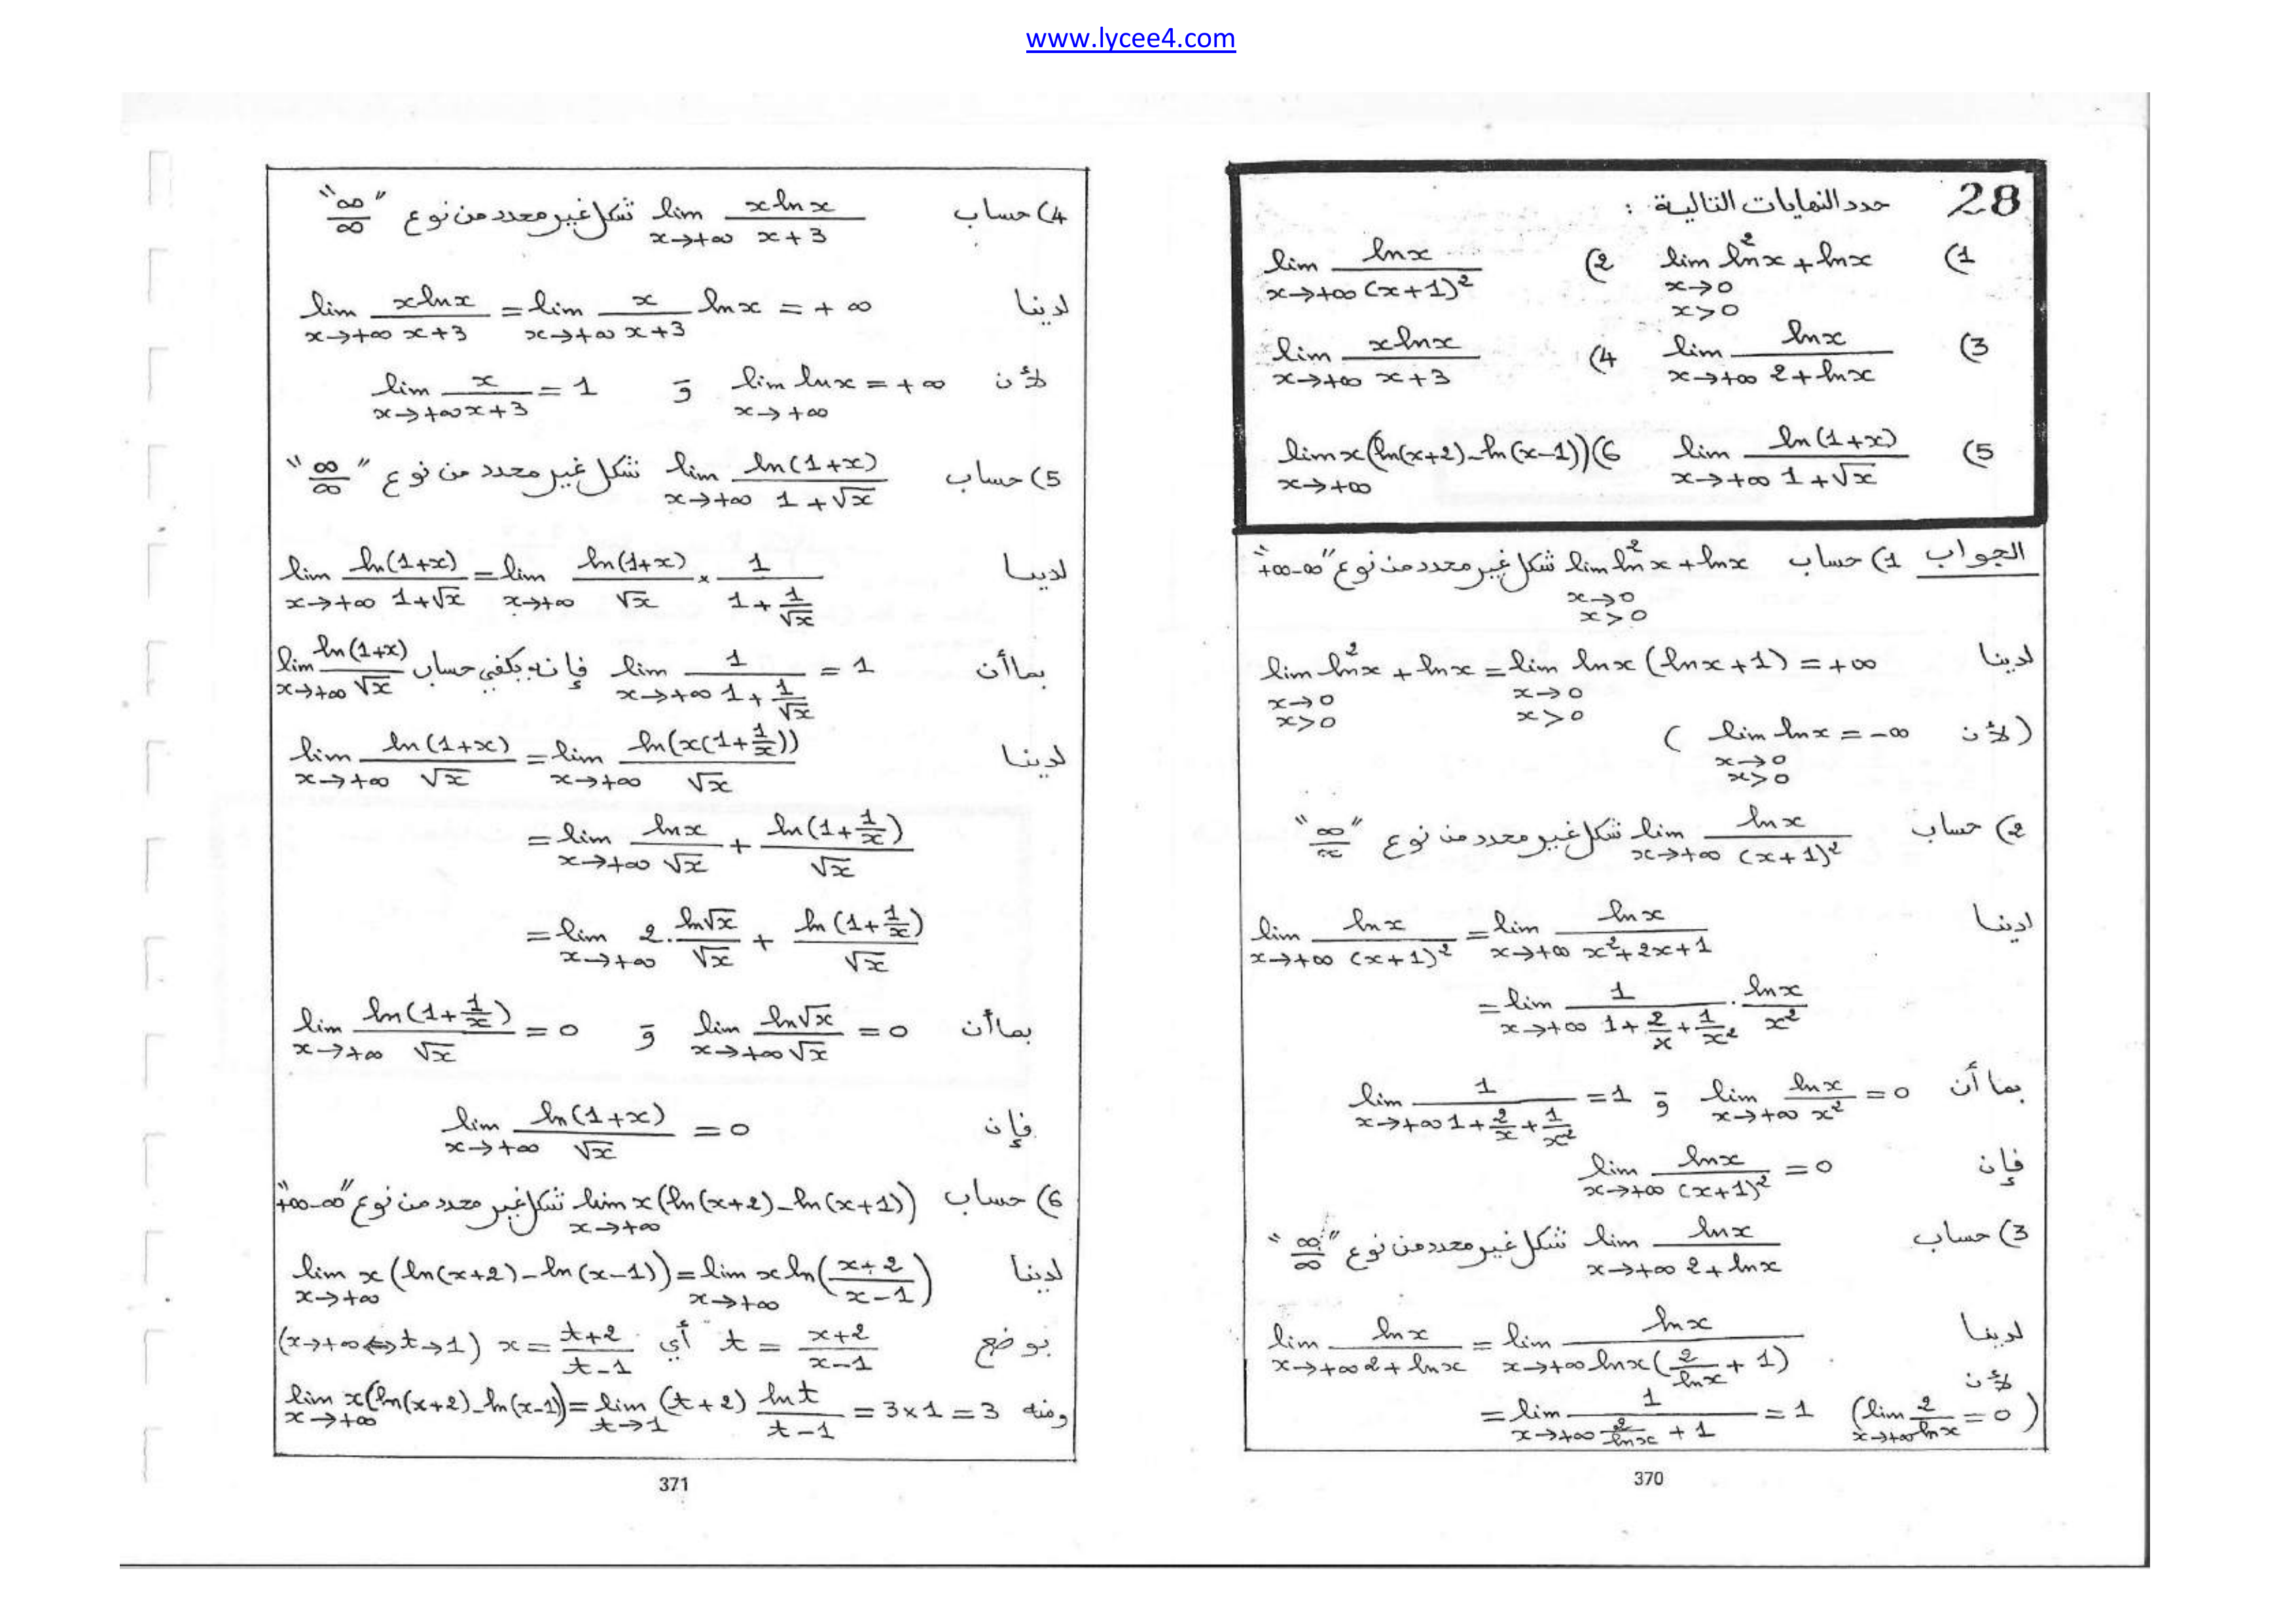 www.lycee4.com
28 حدد النهايات التالية :
1) lim_{x→0, x>0} ln²x + lnx   2) lim_{x→+∞} lnx/(x+1)²
3) lim_{x→+∞} lnx/(2+lnx)   4) lim_{x→+∞} xlnx/(x+3)
5) lim_{x→+∞} ln(1+x)/(1+√x)   6) lim_{x→+∞} x(ln(x+2)-ln(x-1))
الجواب 1) حساب lim_{x→0, x>0} ln²x + lnx شكل غير محدد من نوع "+∞-∞"
لدينا lim_{x→0, x>0} ln²x + lnx = lim_{x→0, x>0} lnx(lnx+1) = +∞
(لأن lim_{x→0, x>0} lnx = -∞)
2) حساب lim_{x→+∞} lnx/(x+1)² شكل غير محدد من نوع "∞/∞"
لدينا lim_{x→+∞} lnx/(x+1)² = lim_{x→+∞} lnx/(x²+2x+1)
= lim_{x→+∞} 1/(1+2/x+1/x²) . lnx/x²
بما أن lim_{x→+∞} lnx/x² = 0 و lim_{x→+∞} 1/(1+2/x+1/x²) = 1
فإن lim_{x→+∞} lnx/(x+1)² = 0
3) حساب lim_{x→+∞} lnx/(2+lnx) شكل غير محدد من نوع "∞/∞"
لدينا lim_{x→+∞} lnx/(2+lnx) = lim_{x→+∞} lnx/(lnx(2/lnx + 1))
= lim_{x→+∞} 1/(2/lnx + 1) = 1 (لأن lim_{x→+∞} 2/lnx = 0)
370
4) حساب lim_{x→+∞} xlnx/(x+3) شكل غير محدد من نوع "∞/∞"
لدينا lim_{x→+∞} xlnx/(x+3) = lim_{x→+∞} x/(x+3) lnx = +∞
لأن lim_{x→+∞} lnx = +∞ و lim_{x→+∞} x/(x+3) = 1
5) حساب lim_{x→+∞} ln(1+x)/(1+√x) شكل غير محدد من نوع "∞/∞"
لدينا lim_{x→+∞} ln(1+x)/(1+√x) = lim_{x→+∞} ln(1+x)/√x × 1/(1+1/√x)
بما أن lim_{x→+∞} 1/(1+1/√x) = 1 فإنه يكفي حساب lim_{x→+∞} ln(1+x)/√x
لدينا lim_{x→+∞} ln(1+x)/√x = lim_{x→+∞} ln(x(1+1/x))/√x
= lim_{x→+∞} lnx/√x + ln(1+1/x)/√x
= lim_{x→+∞} 2.ln√x/√x + ln(1+1/x)/√x
بما أن lim_{x→+∞} ln√x/√x = 0 و lim_{x→+∞} ln(1+1/x)/√x = 0
فإن lim_{x→+∞} ln(1+x)/√x = 0
6) حساب lim_{x→+∞} x(ln(x+2)-ln(x+1)) شكل غير محدد من نوع "+∞-∞"
لدينا lim_{x→+∞} x(ln(x+2)-ln(x-1)) = lim_{x→+∞} xln((x+2)/(x-1))
بوضع t = (x+2)/(x-1) أي x = (t+2)/(t-1) (x→+∞ ⇔ t→1)
ومنه lim_{x→+∞} x(ln(x+2)-ln(x-1)) = lim_{t→1} (t+2) lnt/(t-1) = 3×1 = 3
371